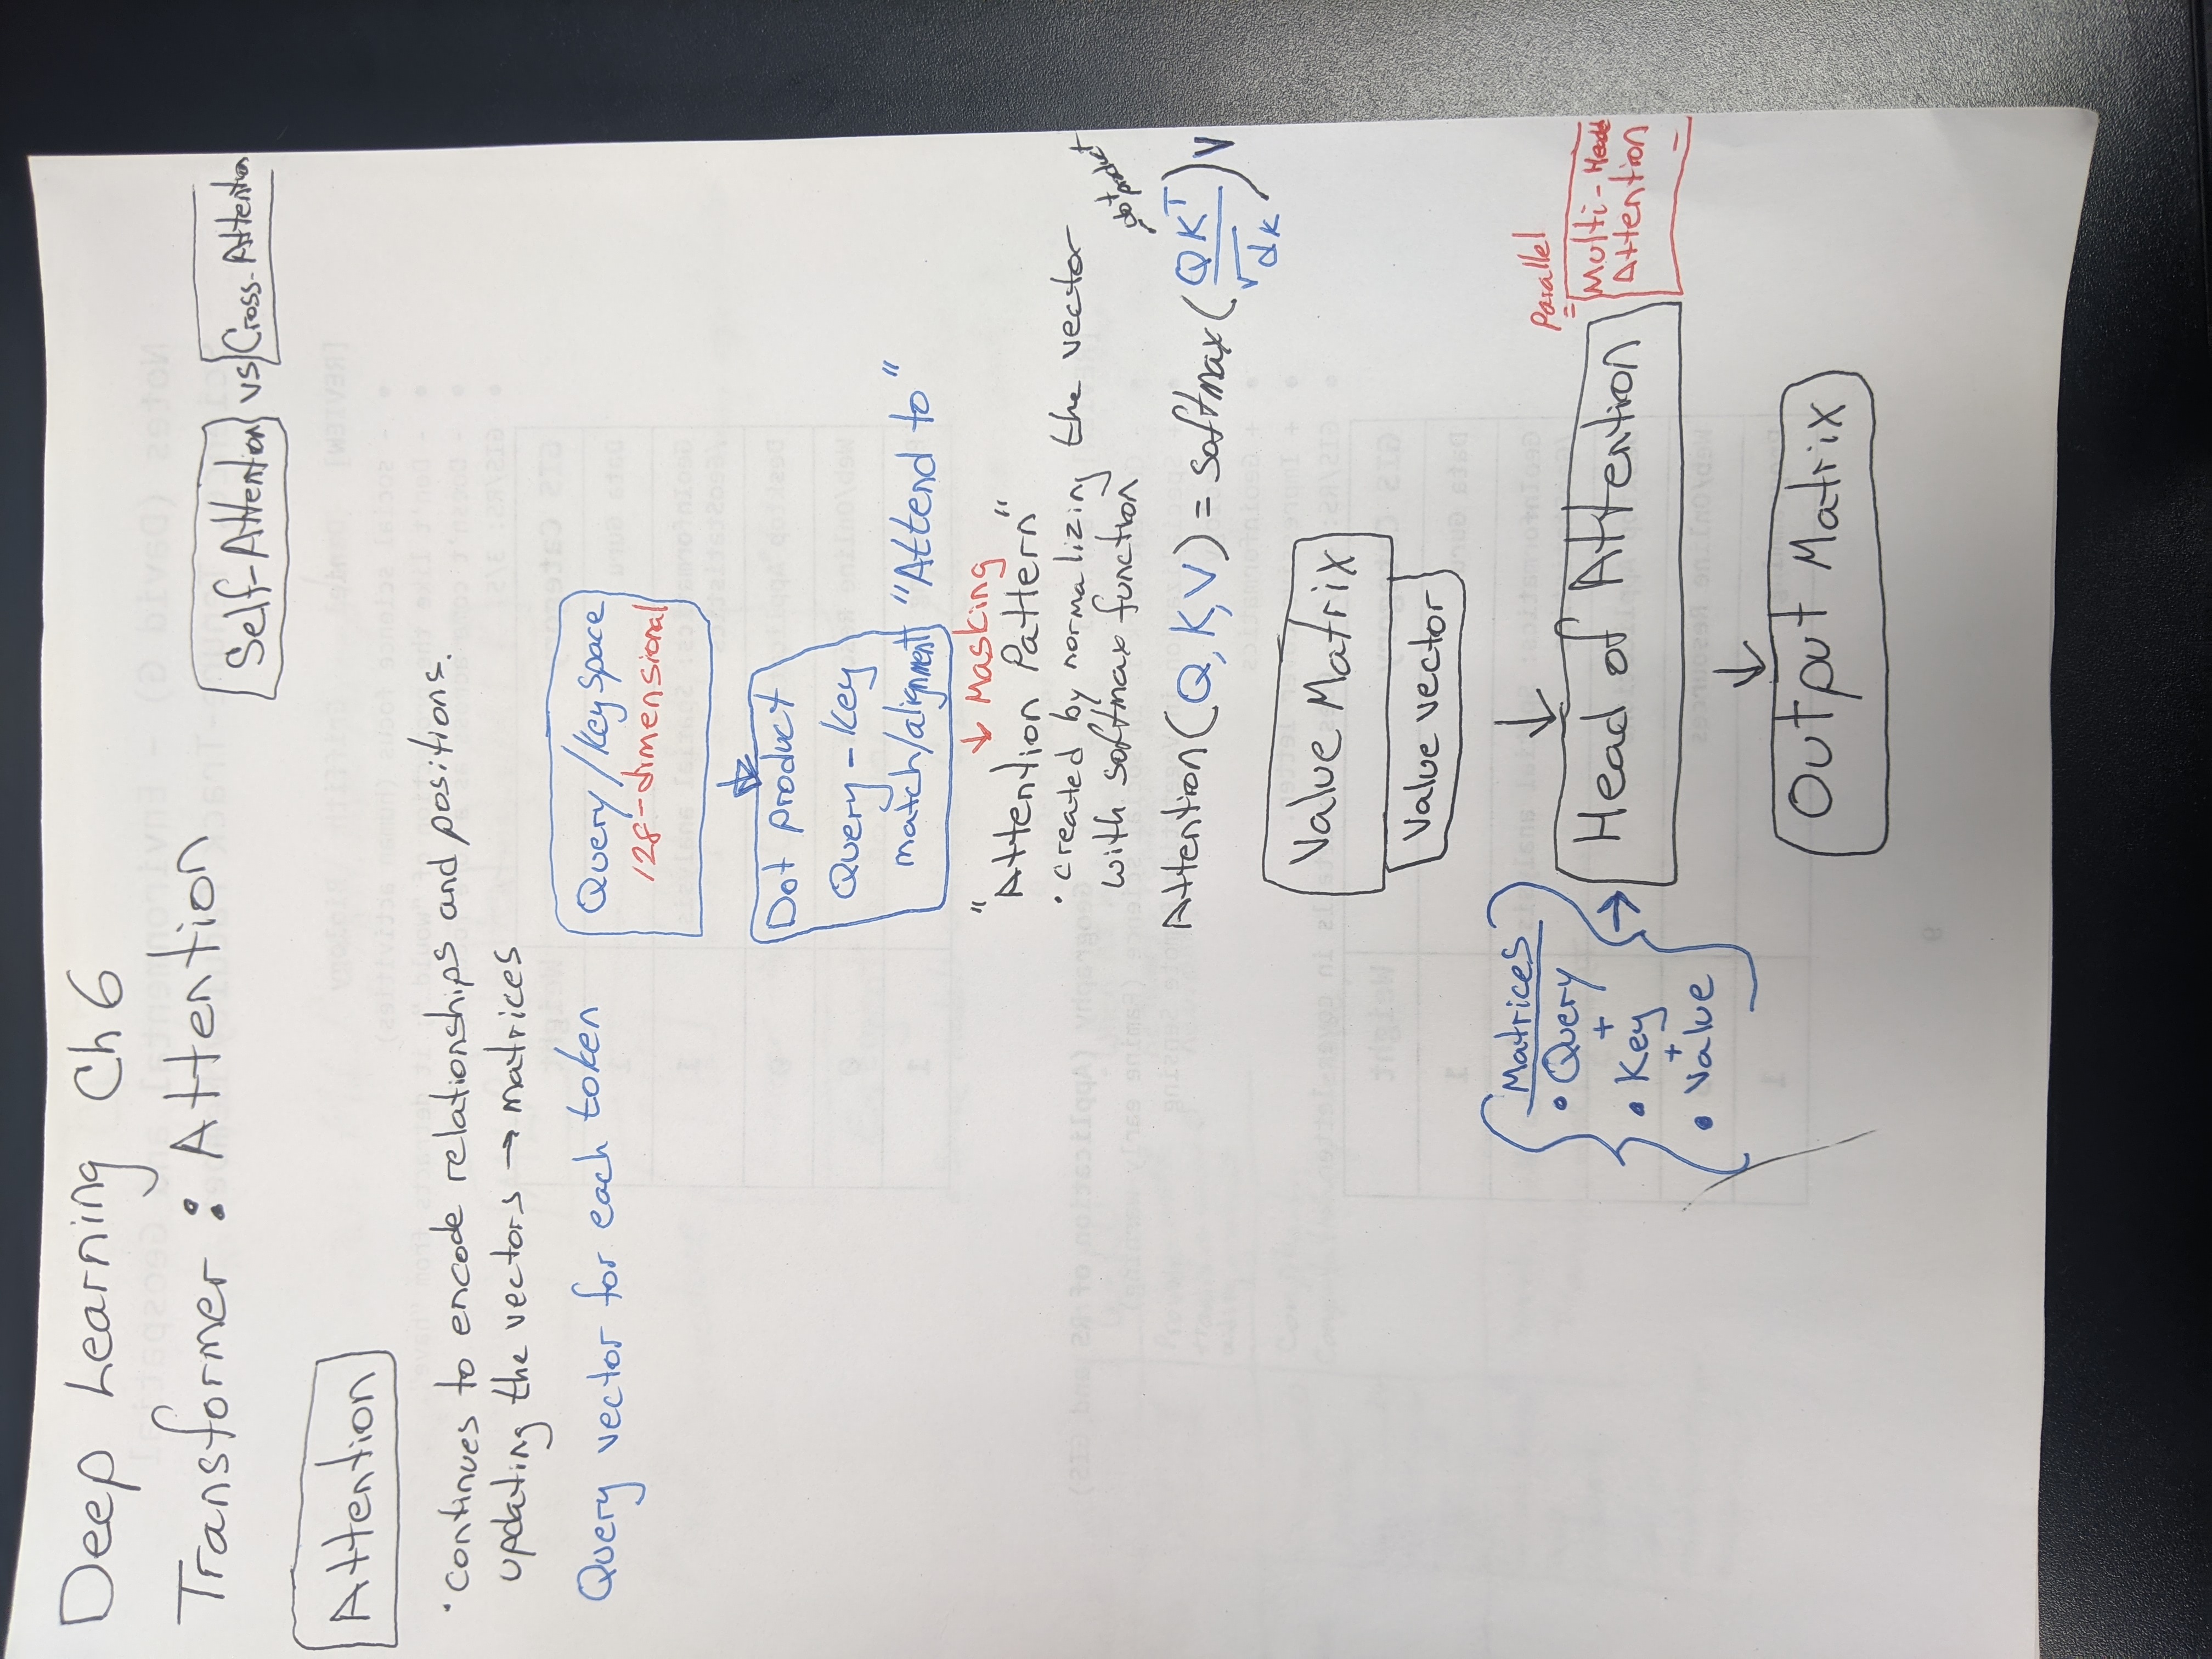 Deep Learning Ch 6
Transformer : Attention
Self-Attention vs Cross-Attention
Attention
• continues to encode relationships and positions.
updating the vectors → matrices
Query vector for each token
Query/Key Space
128-dimensional
Dot product
Query - Key
match/alignment "Attend to"
↓ Masking
"Attention Pattern"
• created by normalizing the vector
with softmax function
dot product
Attention(Q, K, V) = softmax(QKᵀ/√dk)V
Value Matrix
Value vector
Matrices
• Query
+
• Key
+
• Value
→
Head of Attention
Parallel
Multi-Head
Attention
Output Matrix